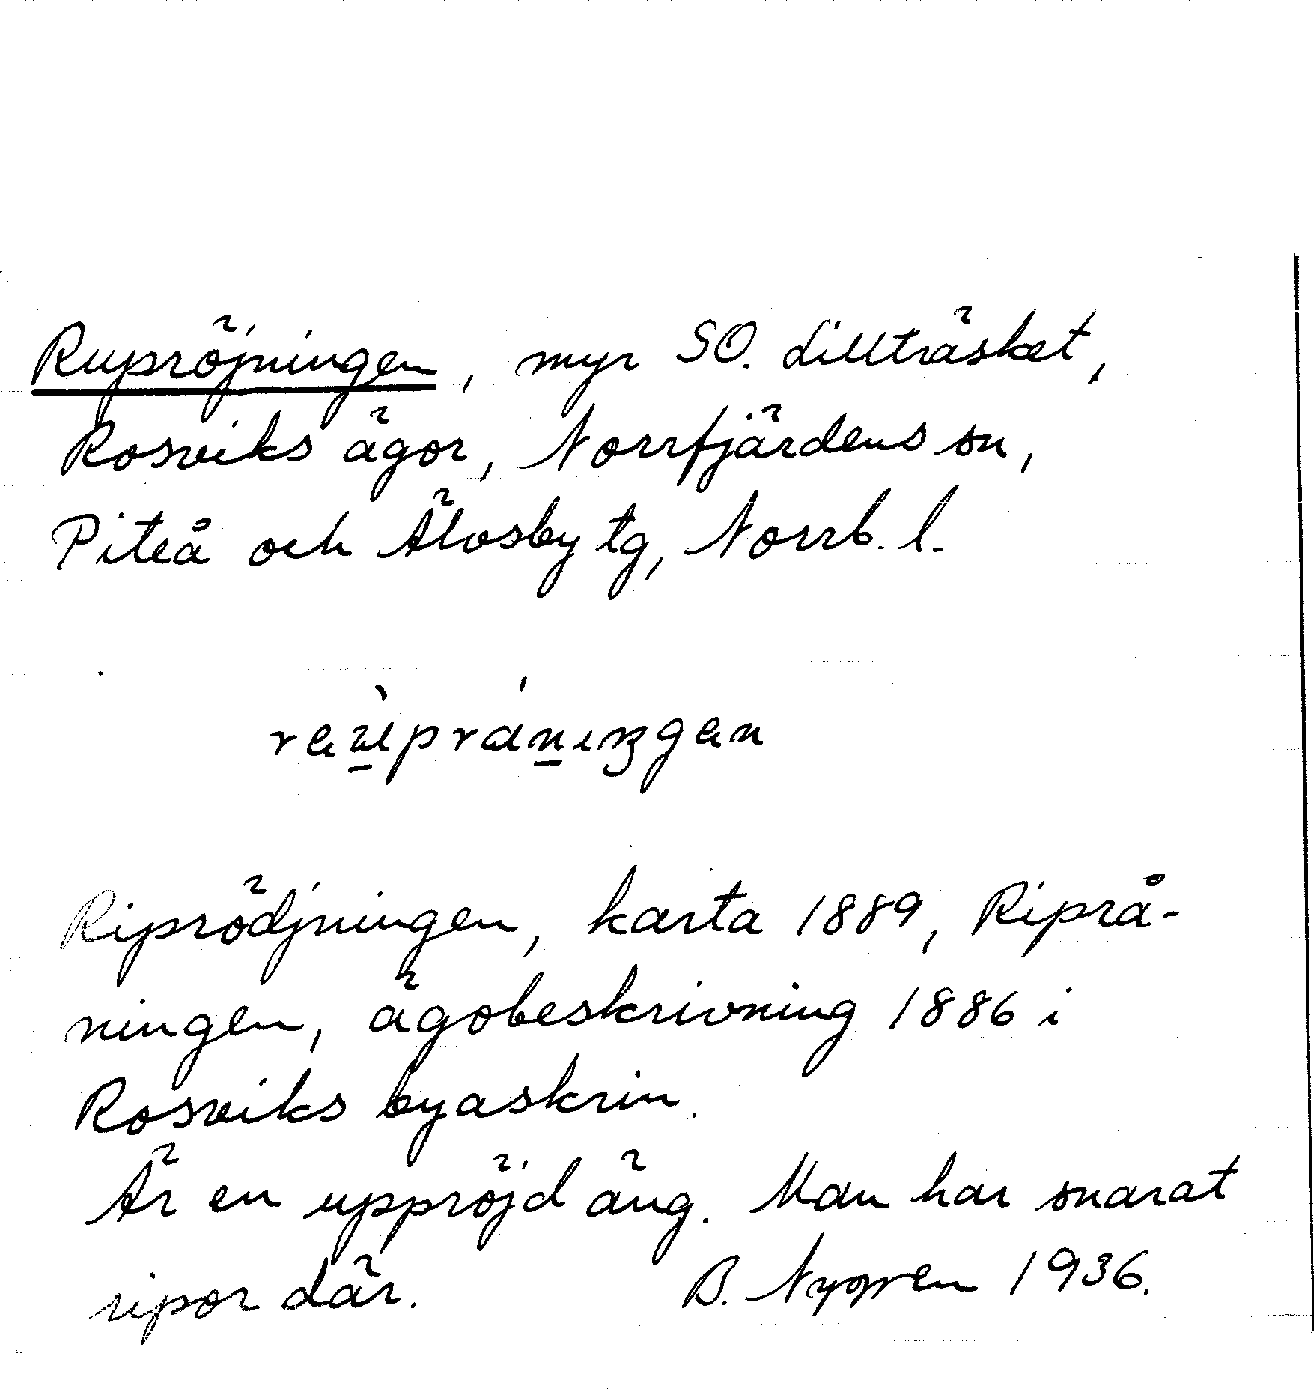 Rupröjningen, myr SO. Lillträsket,
Rosviks ägor, Norrfjärdens sn,
Piteå och Älvsby tg, Norrb. l.
Riprödjningen, karta 1889, Riprå-
ningen, ägobeskrivning 1886 i
Rosviks byaskrin.
Är en uppröjd äng. Man har snarat
ripor där. B. Nygren 1936.